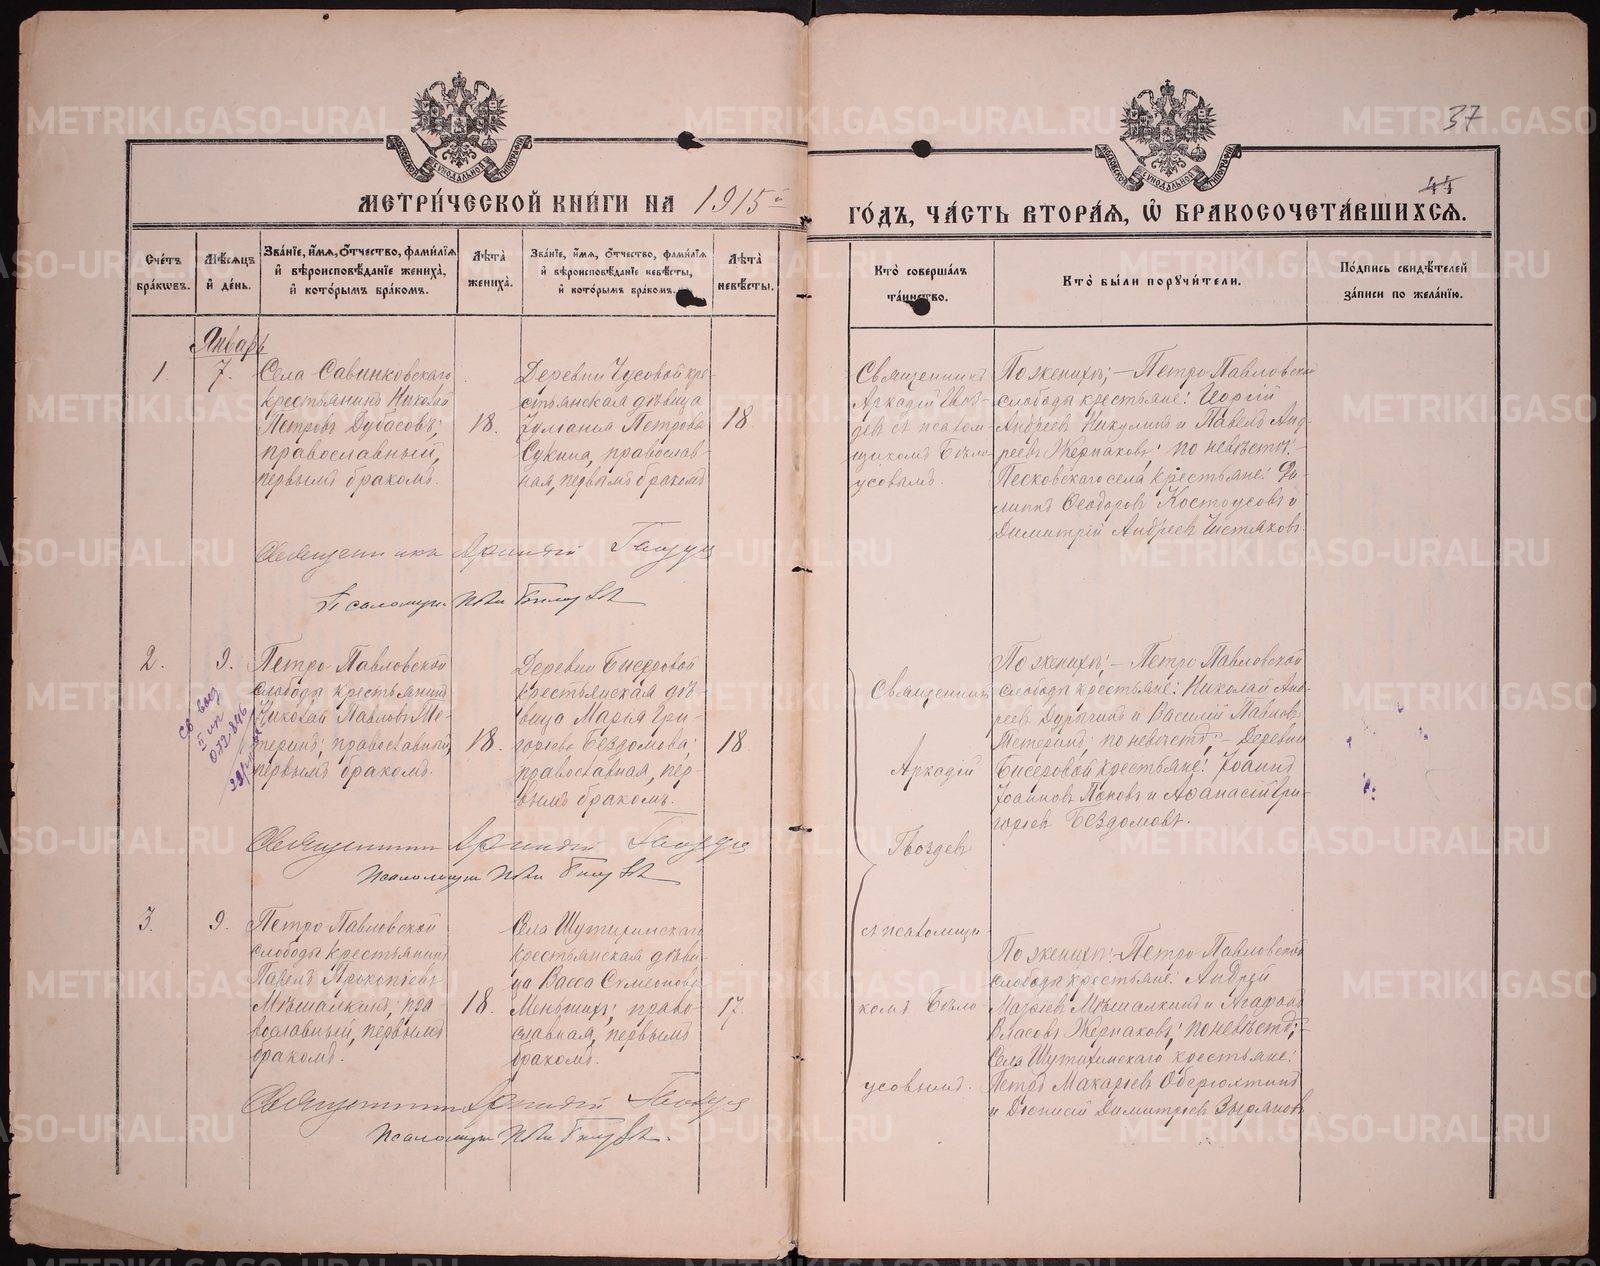 37
44
МЕТРИЧЕСКОЙ КНИГИ НА 1915й
ГОДЪ, ЧАСТЬ ВТОРАЯ, Ѿ БРАКОСОЧЕТАВШИХСЯ.
Счетъ браковъ.
Мѣсяцъ и день.
Званіе, имя, отчество, фамилія и вѣроисповѣданіе жениха, и которымъ бракомъ.
Лѣта жениха.
Званіе, имя, отчество, фамилія и вѣроисповѣданіе невѣсты, и которымъ бракомъ.
Лѣта невѣсты.
Кто совершалъ таинство.
Кто были поручители.
Подпись свидѣтелей записи по желанію.
Январь
1.
7.
Села Савинковскаго
крестьянинъ Николай
Петровъ Дубасовъ;
православный,
первымъ бракомъ.
18.
Деревни Чусовой кре-
стьянская дѣвица
Іуліанія Петрова
Сукина, православ-
ная, первымъ бракомъ
18.
Священникъ
Аркадій Гвоз-
девъ съ псалом-
щикомъ Бѣло-
усовымъ.
По женихѣ; – Петро Павловской
слободы крестьяне: Георгій
Андреевъ Никулинъ и Павелъ Анд-
реевъ Жернаковъ; по невѣстѣ: –
Песковскаго села крестьяне: Фи-
липпъ Ѳеодоровъ Костоусовъ и
Димитрій Андреевъ Чистяковъ.
Священникъ Аркадій Гвоздевъ
Псаломщ.
2.
9.
Петро Павловской
слободы крестьянинъ
Николай Павловъ Те-
теринъ; православный,
первымъ бракомъ.
18.
Деревни Бисеровой
крестьянская дѣ-
вица Марія Гри-
горьева Бездомова;
православная, пер-
вымъ бракомъ.
18.
Священникъ
Аркадій
Гвоздевъ
съ псаломщи-
комъ Бѣло-
усовымъ.
По женихѣ; – Петро Павловской
слободы крестьяне: Николай Анд-
реевъ Дурыгинъ и Василій Павловъ
Тетеринъ; по невѣстѣ; – Деревни
Бисеровой крестьяне: Іоаннъ
Іоанновъ Поповъ и Аѳанасій Гри-
горьевъ Бездомовъ.
Священникъ Аркадій Гвоздевъ
Псаломщик
3.
9.
Петро Павловской
слободы крестьянинъ
Павелъ Прокопьевъ
Мѣшалкинъ; пра-
вославный, первымъ
бракомъ.
18.
Села Шутихинскаго
крестьянская дѣви-
ца Васса Симеонова
Меньшихъ; право-
славная, первымъ
бракомъ.
17.
По женихѣ: – Петро Павловской
слободы крестьяне: Андрей
Марковъ Мѣшалкинъ и Агафонъ
Власовъ Жернаковъ; по невѣстѣ; –
Села Шутихинскаго крестьяне:
Петръ Макарьевъ Оберюхтинъ
и Діонисій Димитріевъ Зыряновъ
Священникъ Аркадій Гвоздевъ
Псаломщик
METRIKI.GASO-URAL.RU